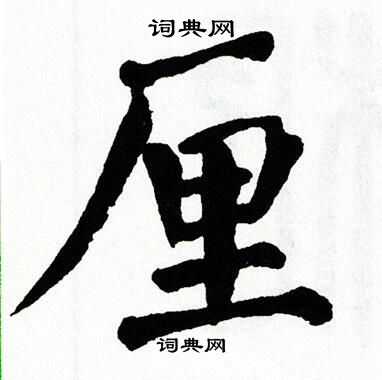 词典网
厘
词典网